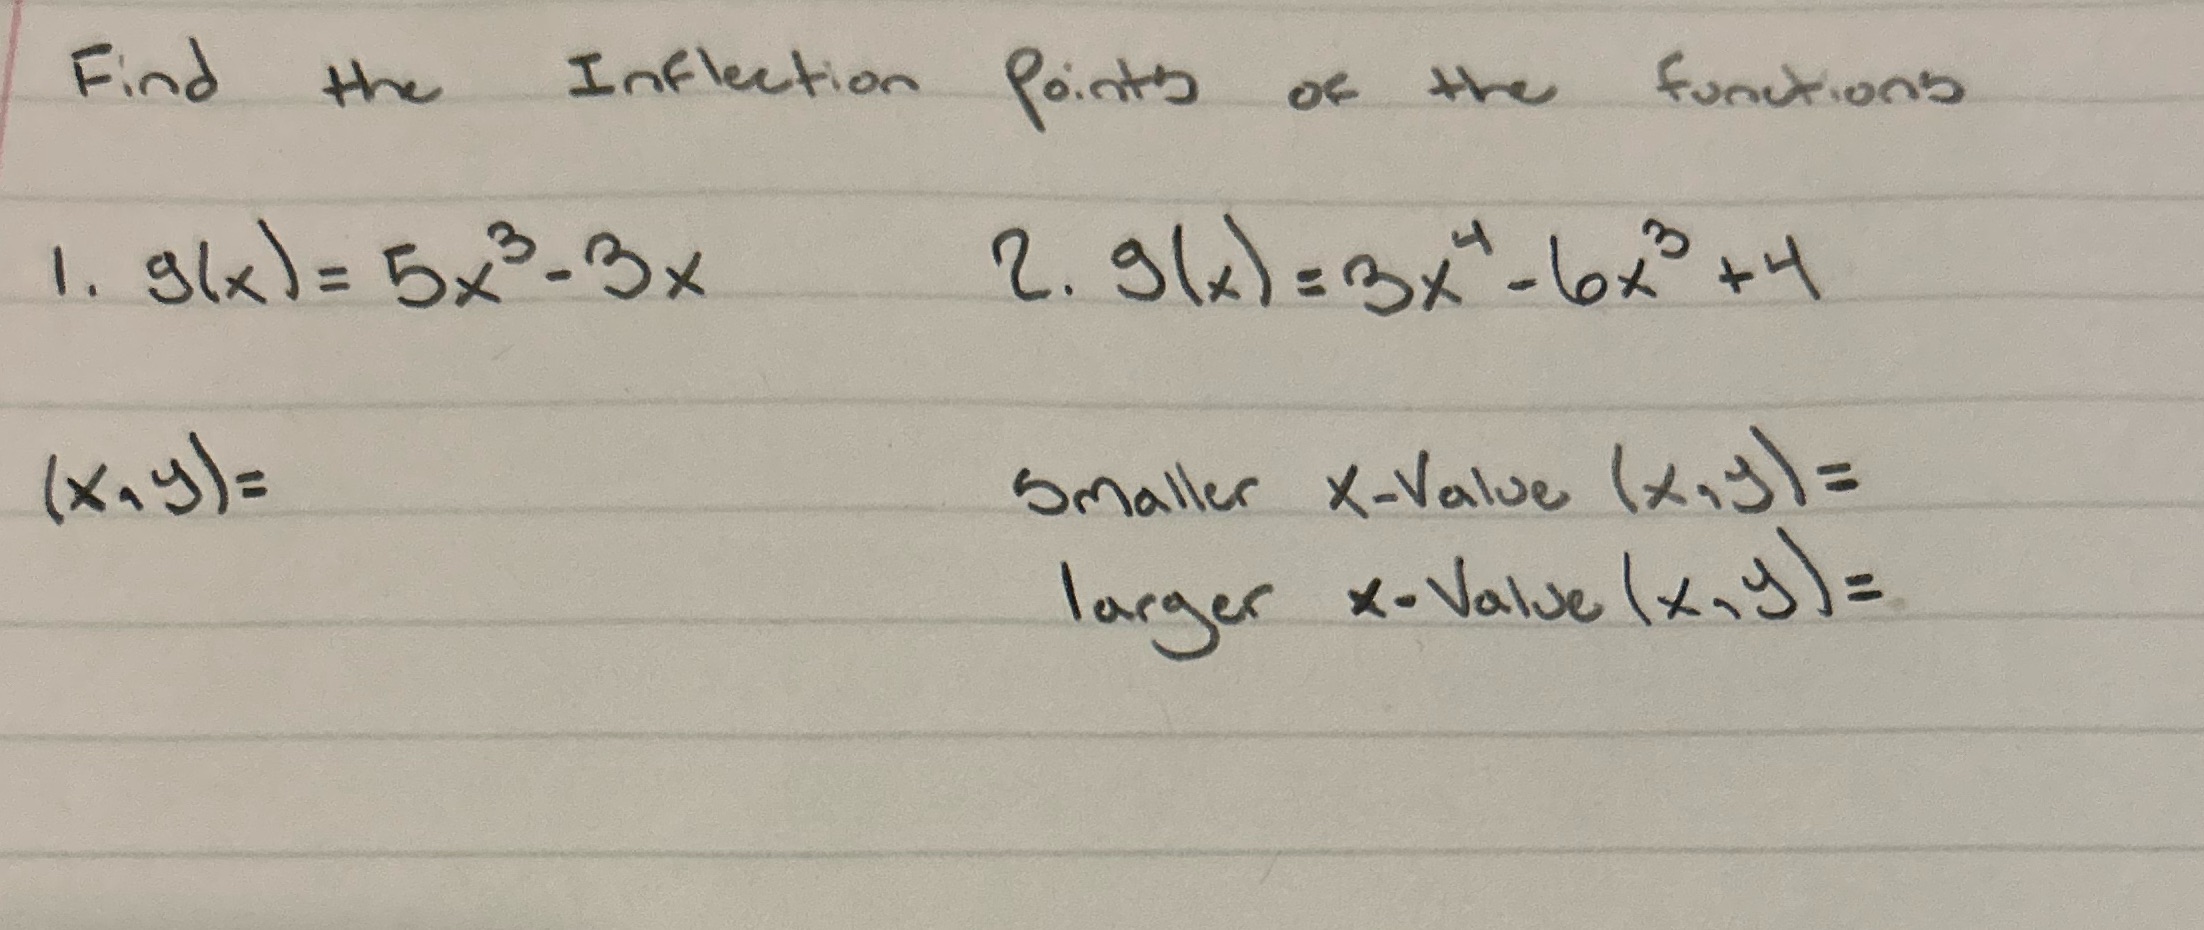 Find the Inflection Points of the functions
1. g(x) = 5x³ - 3x 2. g(x) = 3x⁴ - 6x³ + 4
(x,y) = smaller x-Value (x,y) =
larger x-Value (x,y) =